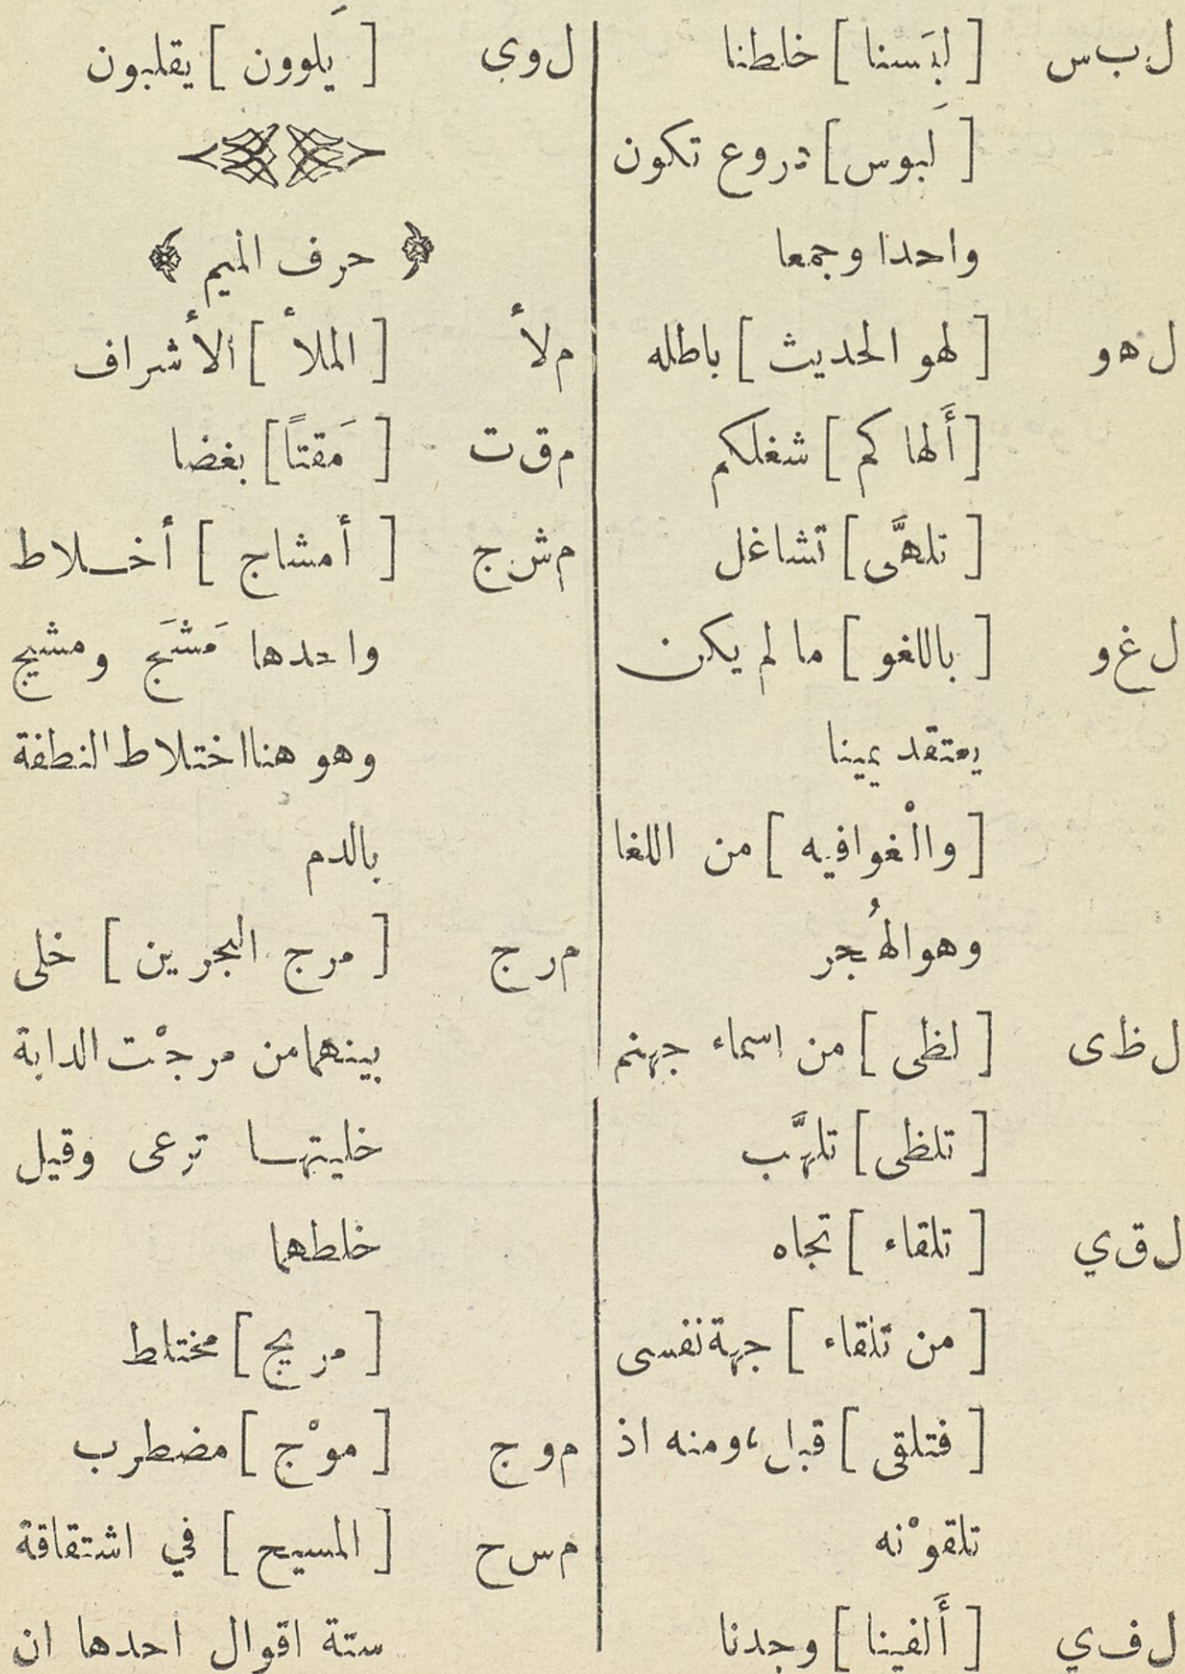 ل ب س [ لبَسنا ] خلطنا
[ لَبوس ] دروع تكون
واحدا وجمعا
ل ه و [ لهو الحديث ] باطله
[ أَلها كم ] شغلكم
[ تلهَّى ] تشاغل
ل غ و [ باللغو ] ما لم يكن
يعتقد يمينا
[ والْغوا فيه ] من اللغا
وهو الهُجر
ل ظ ى [ لظى ] من اسماء جهنم
[ تلظى ] تلهَّب
ل ق ي [ تلقاء ] تجاه
[ من تلقاء ] جهة نفسى
[ فتلقى ] قبل، ومنه اذ
تلقوْنه
ل ف ي [ أَلفينا ] وجدنا
ل و ى [ يَلوون ] يقلبون
﴿ حرف الميم ﴾
م ل أ [ الملأ ] الأشراف
م ق ت [ مَقتاً ] بغضا
م ش ج [ أمشاج ] أخـلاط
واحدها مَشَج ومشيج
وهو هنا اختلاط النطفة
بالدم
م ر ج [ مرج البحرين ] خلى
بينهما من مرجْت الدابة
خليتهـا ترعى وقيل
خلطهما
[ مريج ] مختلط
م و ج [ موْج ] مضطرب
م س ح [ المسيح ] في اشتقاقة
ستة اقوال احدها ان